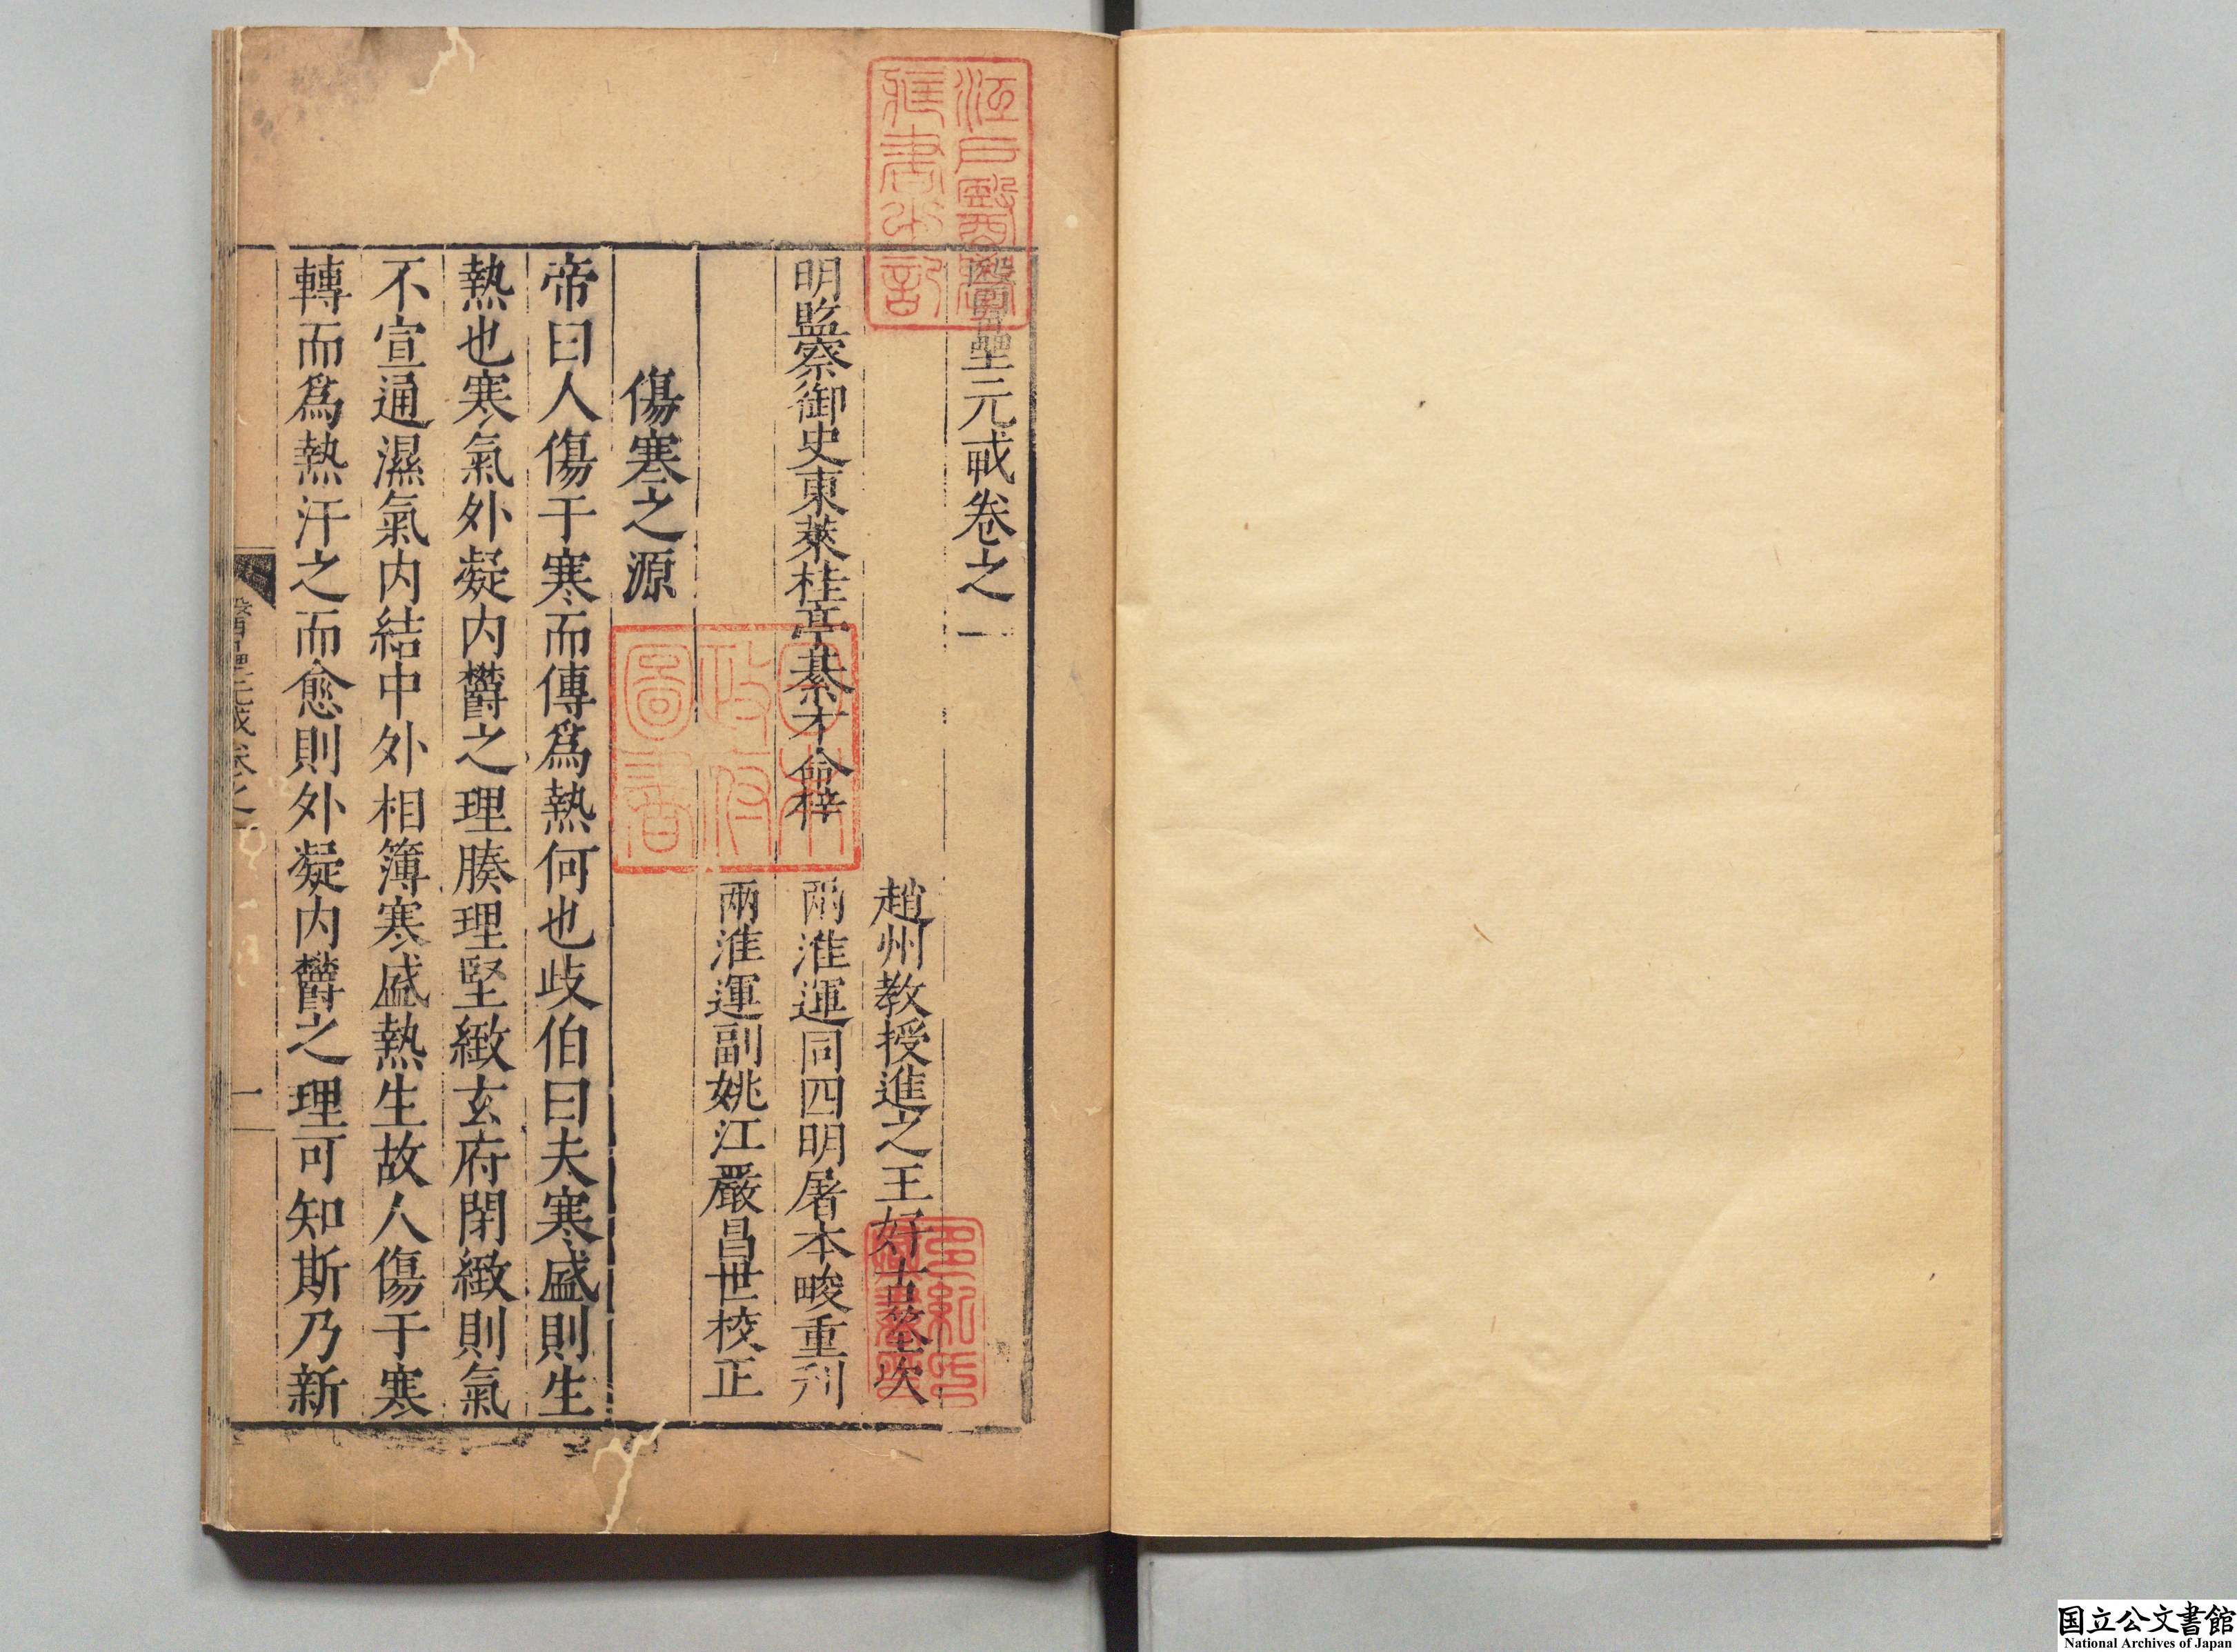 醫壘元戎卷之一
趙州教授進之王好古壘次
明監察御史東萊桂亭綦才命梓
兩淮運同四明屠本畯重刊
兩淮運副姚江嚴昌世校正
傷寒之源
帝曰人傷于寒而傳爲熱何也歧伯曰夫寒盛則生
熱也寒氣外凝内欝之理腠理堅緻玄府閉緻則氣
不宣通濕氣内結中外相簿寒盛熱生故人傷于寒
轉而爲熱汗之而愈則外凝内欝之理可知斯乃新
醫壘元戎卷之一
一
江戸醫學藏書之記
日本政府圖書
多紀氏藏書印
国立公文書館
National Archives of Japan